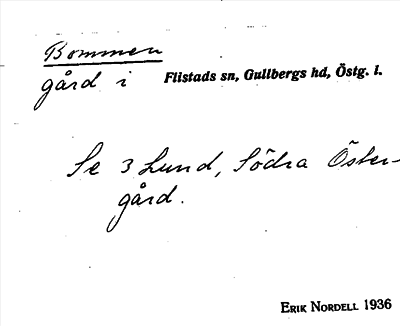 Bommen
gård i Flistads sn, Gullbergs hd, Östg. l.
Se 3 Lund, Södra Öster-
gård.
ERIK NORDELL 1936